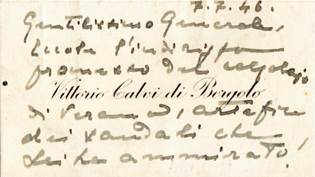 7.7.46.
Gentilissimo Generale,
Eccole l'indirizzo
promesso del calzolajo
Vittorio Calvi di Bergolo
di Verona, artefice
dei sandali che
Lei ha ammirato,